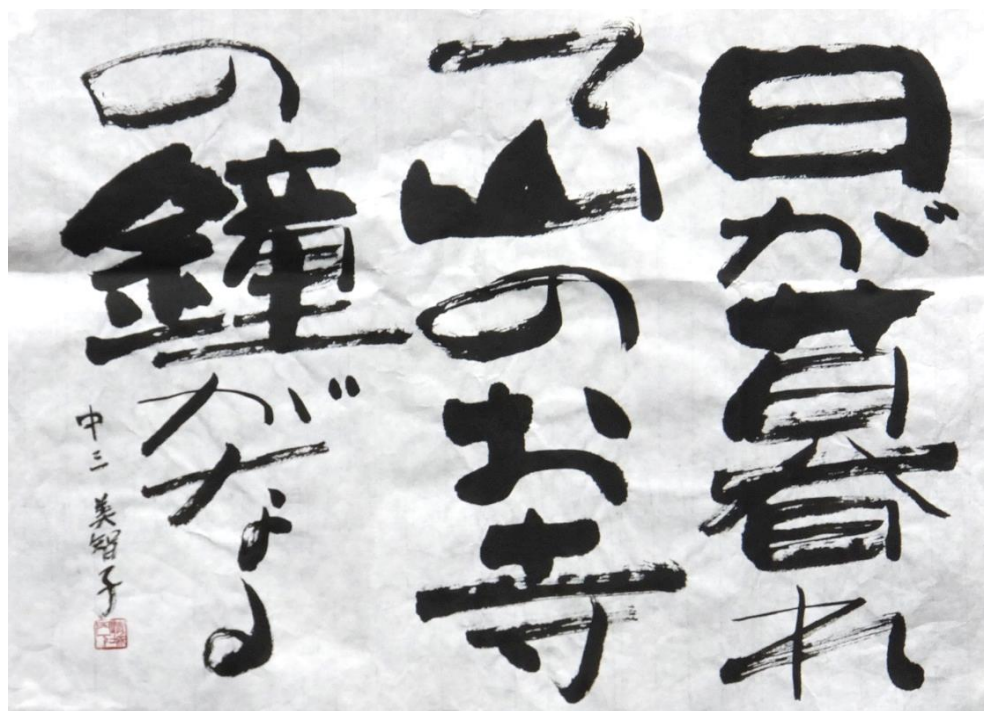 日が暮れ
て山のお寺
の鐘がなる
中三 美智子